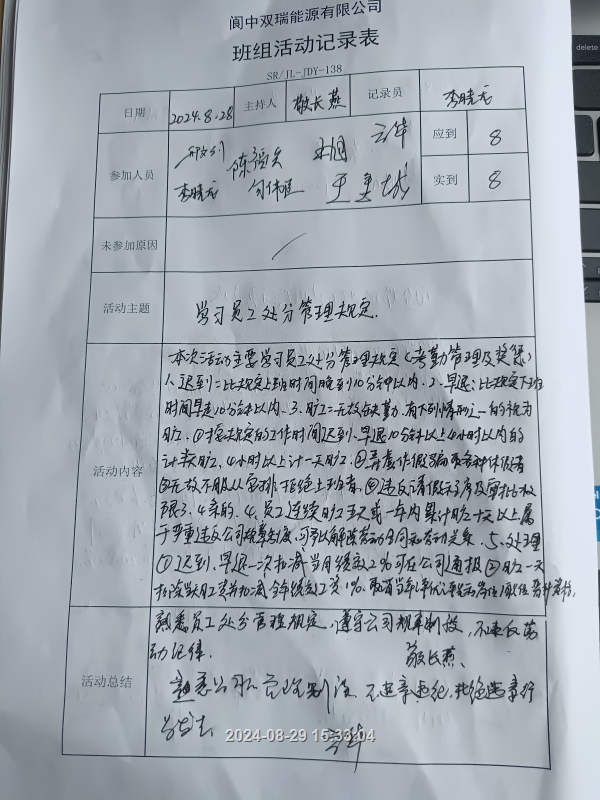 阆中双瑞能源有限公司
班组活动记录表
SR/JL-JDY-138
日期 2024.8.28 主持人 敬长燕 记录员 李晓龙
参加人员 陈 云华 应到 8
李晓龙 实到 8
未参加原因
活动主题 学习员工处分管理规定.
活动内容 本次活动主要学习员工处分管理规定(考勤管理及奖惩)
1、迟到:比规定上班时间晚到10分钟以内.2.早退:比规定下班
时间早走10分钟以内.3.旷工:无故缺勤.有下列情形之一的视为
旷工.①按规定的工作时间迟到、早退10分钟以上4小时以内的
计半天旷工,4小时以上计一天旷工.②弄虚作假骗取各种休假者
③无故不服从安排拒绝上班者.④违反请假程序及审批权
限3.4条的.4.员工连续旷工 天或一年内累计旷工十天以上属
于严重违反公司规章制度,可予以解除劳动合同和劳动关系.5.处理
①迟到、早退一次扣减当月绩效2%可在公司通报②旷工一天
扣除 工资并扣减全年绩效工资1%.取消当年评优评先
活动总结 熟悉员工处分管理规定,遵守公司规章制度,不违反劳
动纪律. 敬长燕.
熟悉公司 管理制度 不违章违纪.拒绝违章行
云华
2024-08-29 15:33:04